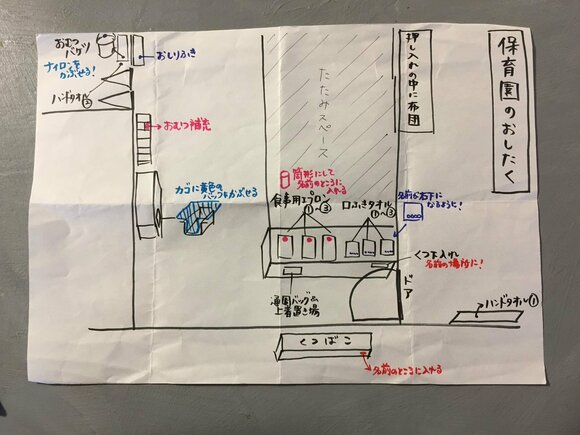 保育園のおしたく
押し入れの中に布団
たたみスペース
おむつ
バケツ
ナイロンを
かぶせる!
おしりふき
ハンドタオル③
おむつ補充
カゴに黄色の
バッグをかぶせる
筒形にして
名前のところに
入れる
食事用エプロン
①〜③
口ふきタオル
①〜③
名前が右下に
なるように!
くつ下入れ
名前の場所に!
ドア
通園バッグ&
上着置き場
ハンドタオル①
くつばこ
名前のところに入れる